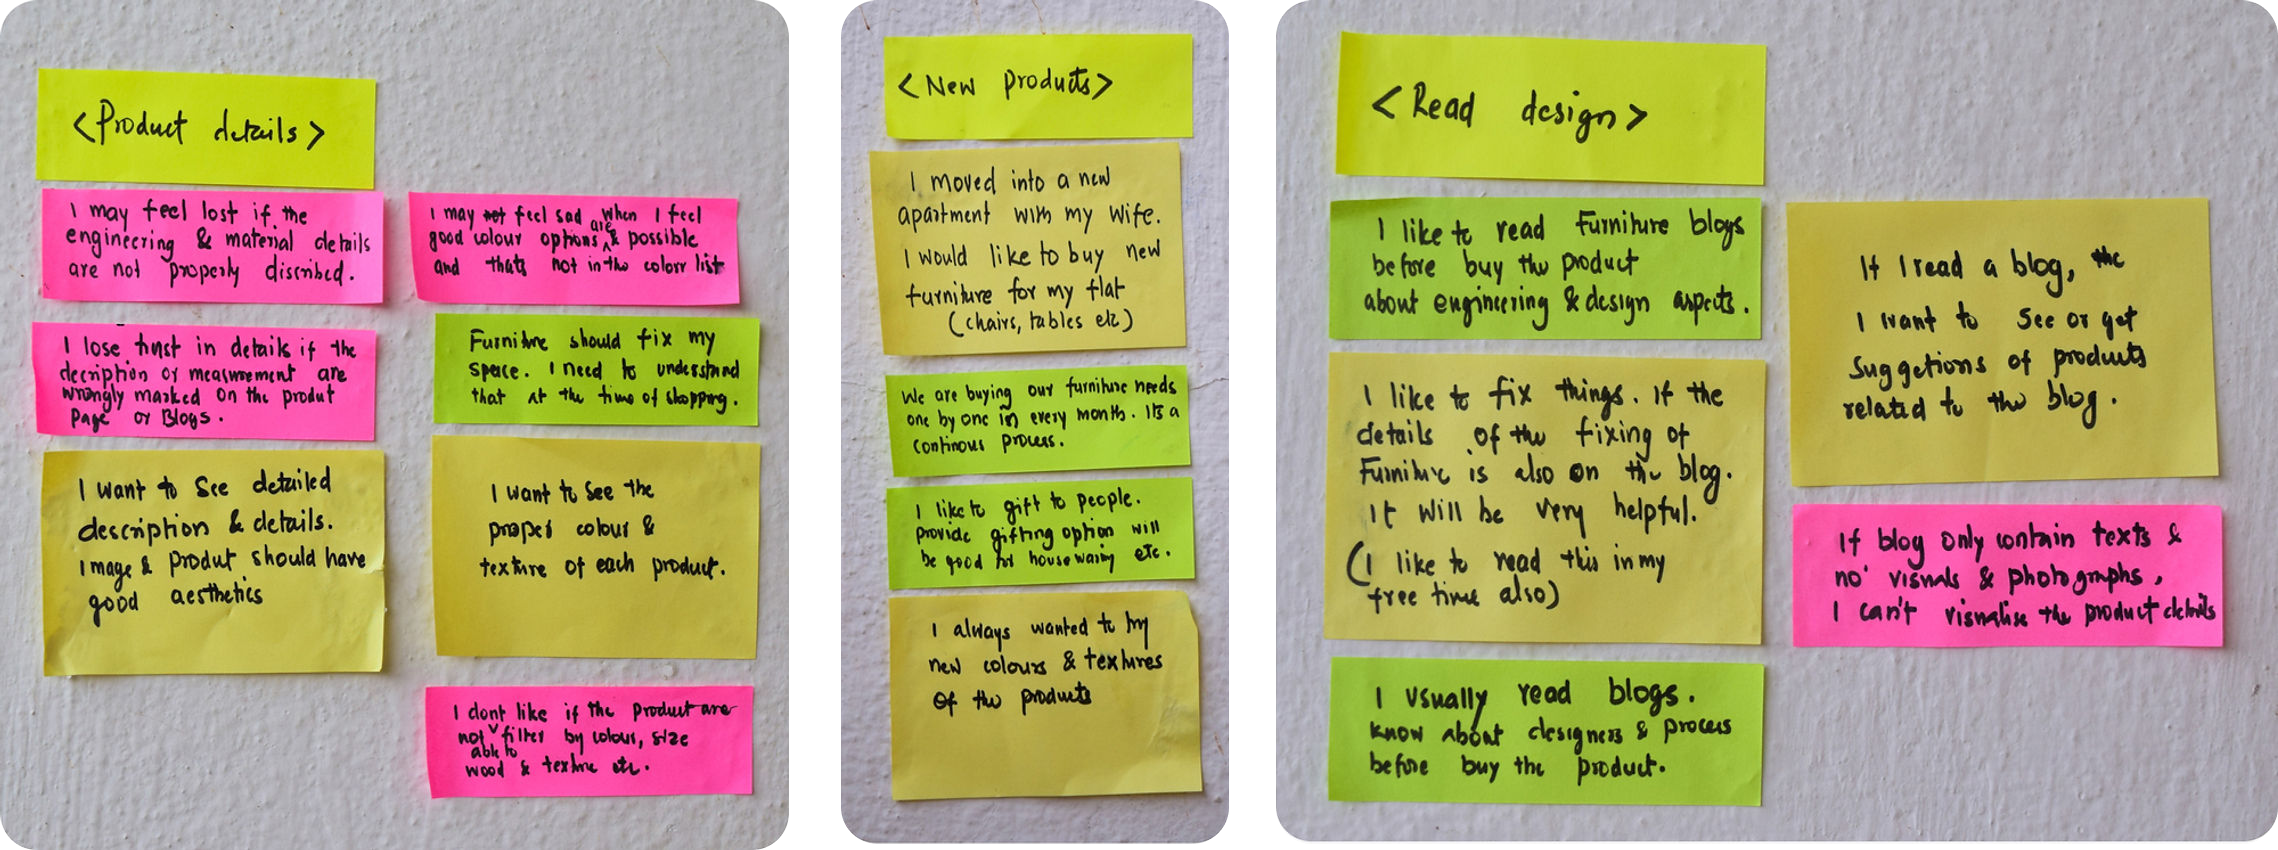 <Product details>
I may feel lost if the
engineering & material details
are not properly discribed.
I lose trust in details if the
decription or measurement are
wrongly marked on the produt
Page or Blogs.
I want to see detailed
description & details.
Image & Produt should have
good aesthetics
I may not feel sad when I feel
good colour options are & possible
and thats not in the colorr list
Furniture should fix my
space. I need to understand
that at the time of shopping.
I want to see the
proper colour &
texture of each product.
I dont like if the product are
not able to filter by colour, size
wood & texture etc.
<New products>
I moved into a new
apartment with my wife.
I would like to buy new
furniture for my flat
(chairs, tables etc)
We are buying our furniture needs
one by one in every month. Its a
continous process.
I like to gift to people.
provide gifting option will
be good for house waring etc.
I always wanted to try
new colours & textures
of the products
<Read design>
I like to read Furniture blogs
before buy the product
about engineering & design aspects.
I like to fix things. If the
details of the fixing of
Furniture is also on the blog.
It will be very helpful.
(I like to read this in my
free time also)
I usually read blogs.
know about designers & process
before buy the product.
If I read a blog, the
I want to see or get
suggetions of products
related to the blog.
If blog only contain texts &
no visuals & photographs,
I can't visualise the product details